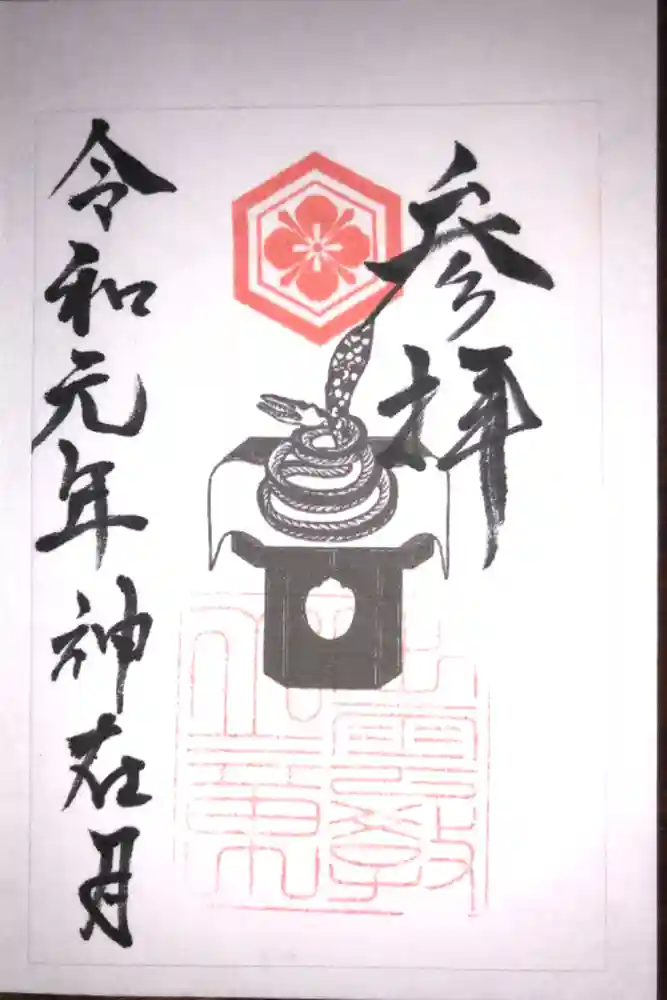 参拝
令和元年神在月
出雲教